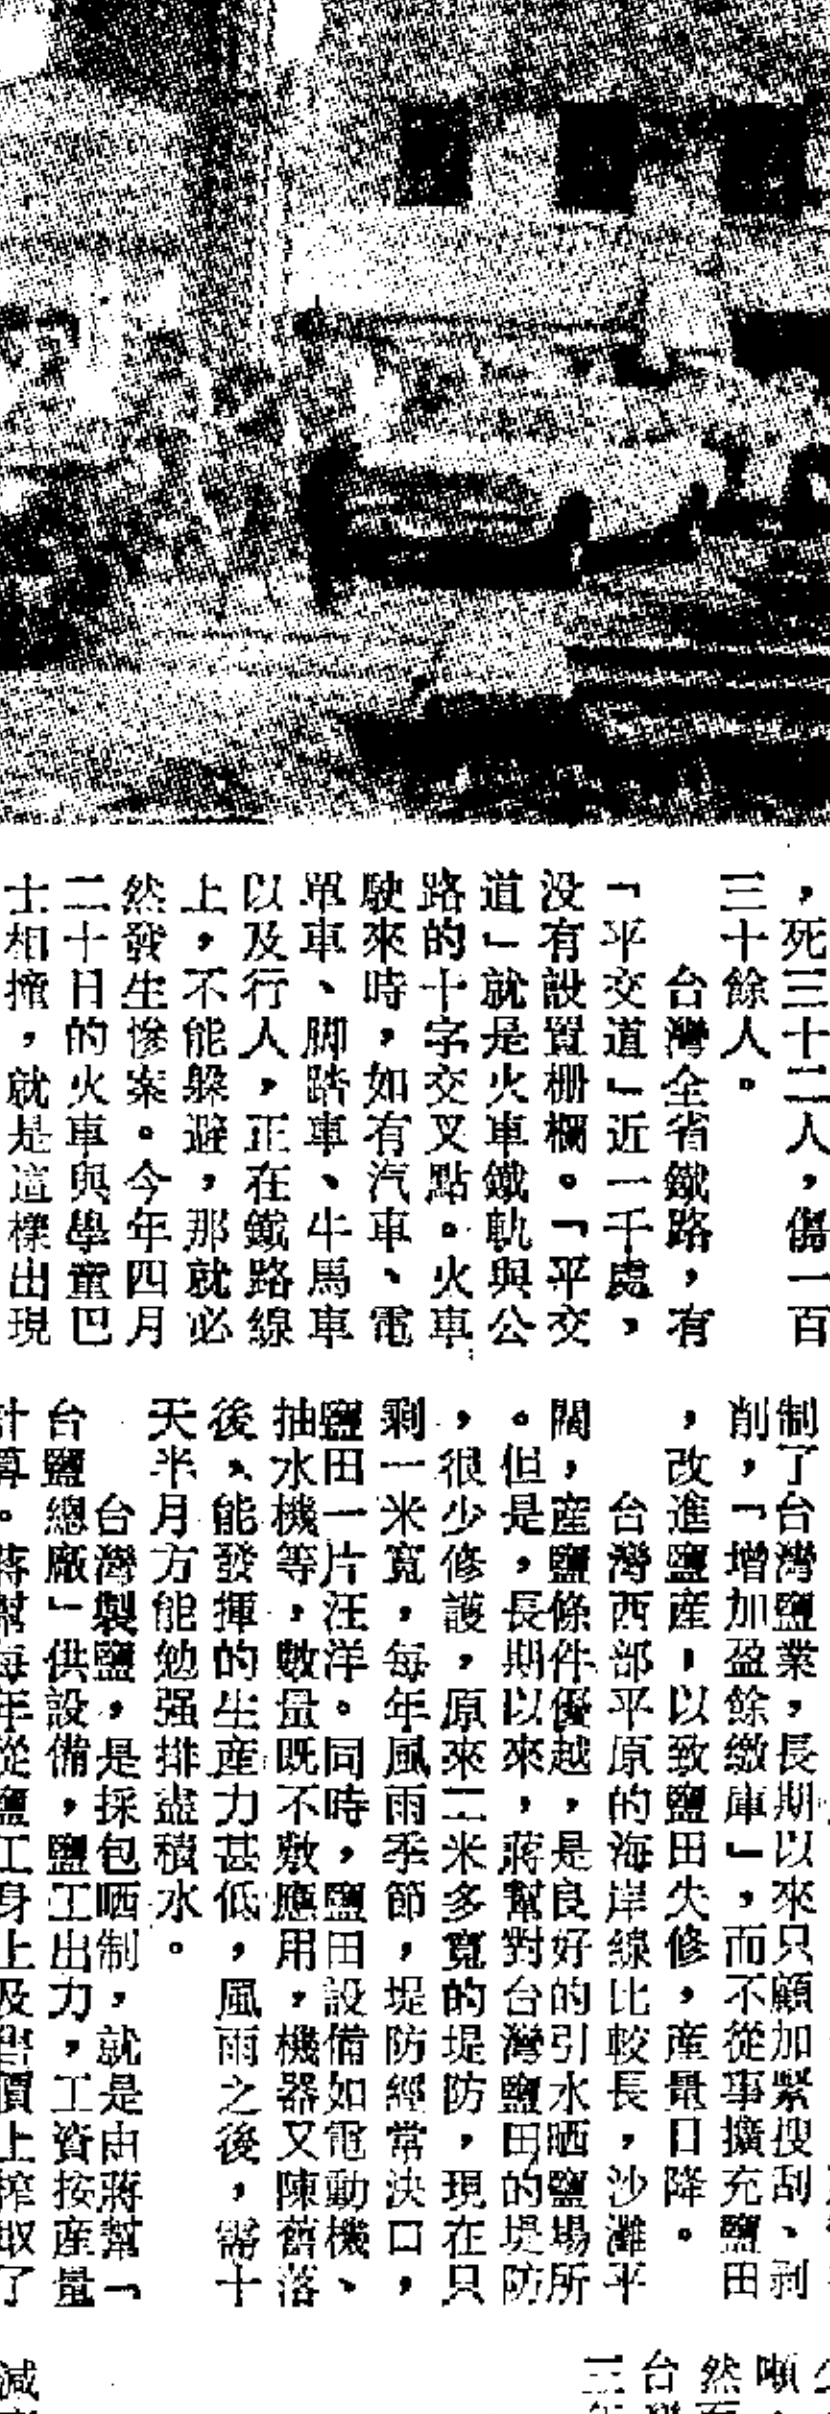 ，死三十二人，傷一百
三十餘人。
台灣全省鐵路，有
「平交道」近一千處，
没有設置栅欄。「平交
道」就是火車鐵軌與公
路的十字交叉點。火車
駛來時，如有汽車、電
單車、脚踏車、牛馬車
以及行人，正在鐵路線
上，不能躲避，那就必
然發生慘案。今年四月
二十日的火車與學童巴
士相撞，就是這樣出現
制了台灣鹽業，長期以來只顧加緊搜刮、剥
削，「增加盈餘繳庫」，而不從事擴充鹽田
，改進鹽産，以致鹽田失修，産量日降。
台灣西部平原的海岸線比較長，沙灘平
闊，産鹽條件優越，是良好的引水晒鹽場所
。但是，長期以來，蔣幫對台灣鹽田的堤防
，很少修護，原來二米多寬的堤防，現在只
剩一米寬，每年風雨季節，堤防經常決口，
鹽田一片汪洋。同時，鹽田設備如電動機、
抽水機等，數量既不敷應用，機器又陳舊落
後，能發揮的生産力甚低，風雨之後，需十
天半月方能勉强排盡積水。
台灣製鹽，是採包晒制，就是由蔣幫「
台鹽總廠」供設備，鹽工出力，工資按産量
計算。蔣幫每年從鹽工身上及鹽價上榨取了
噸
然而
台灣
三年
減